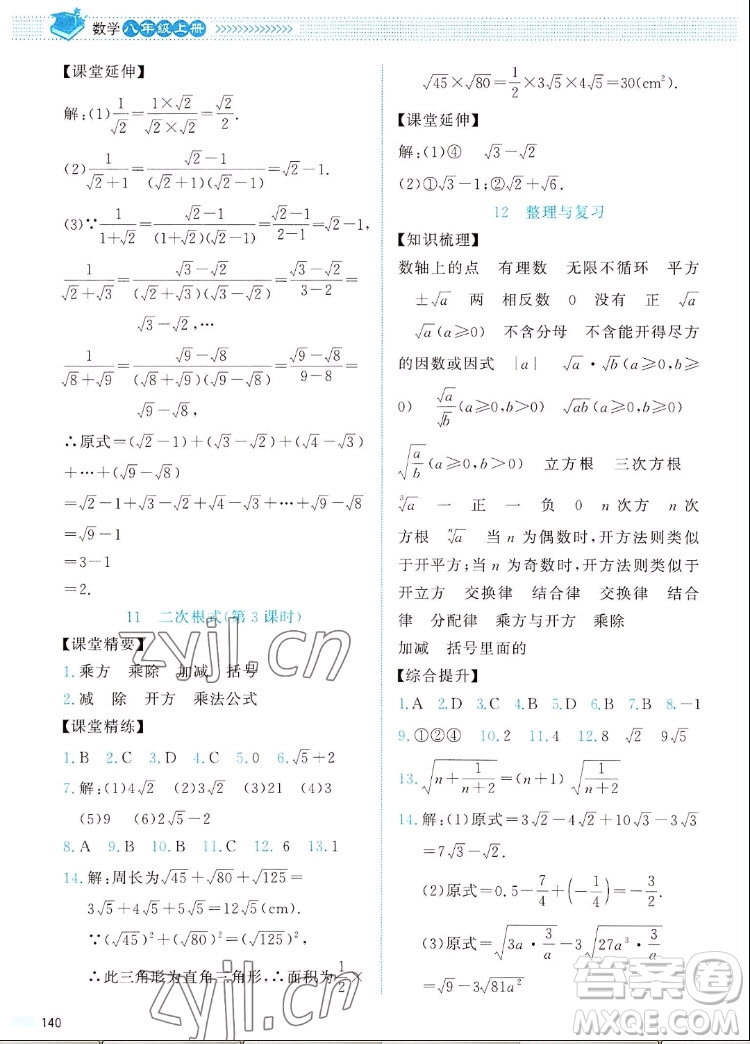 数学八年级上册
【课堂延伸】
解:(1) 1/√2 = (1×√2)/(√2×√2) = √2/2.
(2) 1/(√2+1) = (√2-1)/((√2+1)(√2-1)) = √2-1.
(3)∵ 1/(1+√2) = (√2-1)/((1+√2)(√2-1)) = √2-1,
1/(√2+√3) = (√3-√2)/((√2+√3)(√3-√2)) = (√3-√2)/(3-2) =
√3-√2,…
1/(√8+√9) = (√9-√8)/((√8+√9)(√9-√8)) = (√9-√8)/(9-8) =
√9-√8,
∴原式=(√2-1)+(√3-√2)+(√4-√3)
+…+(√9-√8)
=√2-1+√3-√2+√4-√3+…+√9-√8
=√9-1
=3-1
=2.
11 二次根式(第3课时)
【课堂精要】
1.乘方 乘除 加减 括号
2.减 除 开方 乘法公式
【课堂精练】
1.B 2.C 3.D 4.B 5.7 6.√5+2
7.解:(1)4√2 (2)3√2 (3)1 (4)3√2
(5)9 (6)2√5-2
8.A 9.D 10.B 11.C 12.6 13.1
14.解:周长为√45+√80+√125=
3√5+4√5+5√5=12√5(cm).
∵(√45)²+(√80)²=(√125)²,
∴此三角形为直角三角形.∴面积为1/2×
√45×√80=1/2×3√5×4√5=30(cm²).
【课堂延伸】
解:(1)④ √3-√2
(2)①√3-√1. ②√2+√6.
12 整理与复习
【知识梳理】
数轴上的点 有理数 无限不循环 平方
±√a 两 相反数 0 没有 正 √a
√a(a≥0) 不含分母 不含能开得尽方
的因数或因式 |a| √a·√b(a≥0,b≥
0) √a/√b(a≥0,b>0) √ab(a≥0,b≥0)
√(a/b)(a≥0,b>0) 立方根 三次方根
∛a 一 正 一 负 0 n次方 n次
方根 ⁿ√a 当n为偶数时,开方法则类似
于开平方;当n为奇数时,开方法则类似于
开立方 交换律 结合律 交换律 结合
律 分配律 乘方与开方 乘除
加减 括号里面的
【综合提升】
1.A 2.D 3.C 4.B 5.D 6.B 7.B 8.-1
9.①②④ 10.2 11.4 12.6 √2 9√5
13.√(n+1/(n+2))=(n+1)√(1/(n+2))
14.解:(1)原式=3√2-4√2+10√3-3√3
=7√3-√2.
(2)原式=0.5-7/4+(-1/4)=-3/2.
(3)原式=√(3a·3/a)-3√(27a³·3/a)
=√9-3√81a²
140
zyjl.cn
zyjl.cn
答案卷